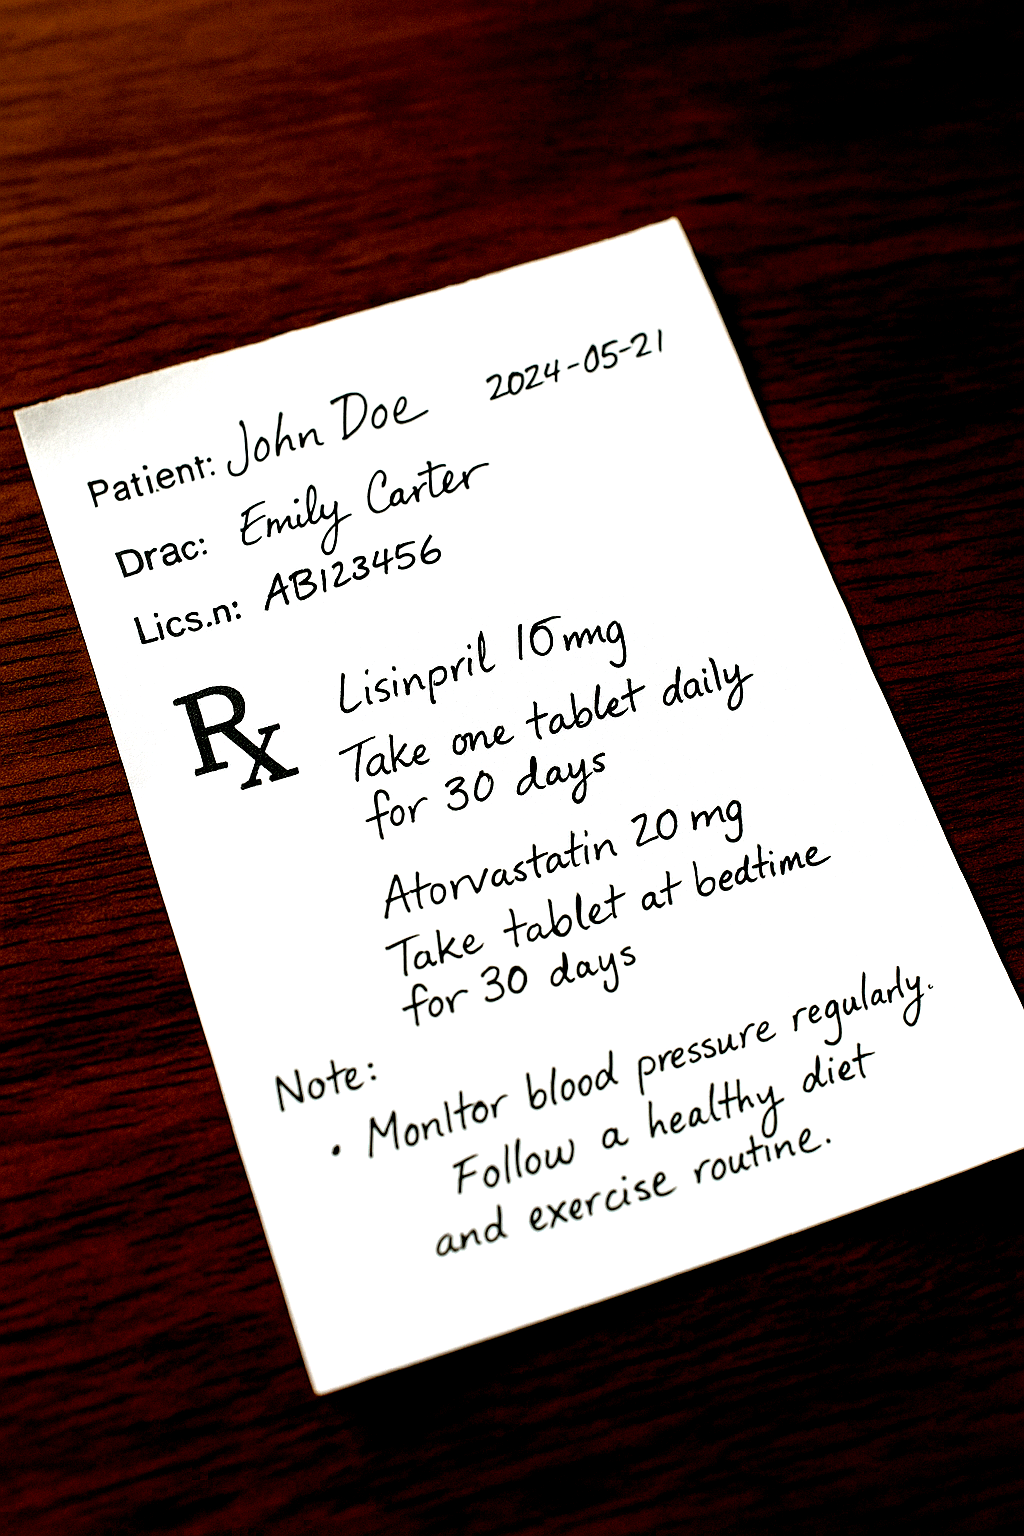 Patient: John Doe 2024-05-21
Drac: Emily Carter
Lics.n: AB123456
Rx
Lisinpril 10 mg
Take one tablet daily
for 30 days
Atorvastatin 20 mg
Take tablet at bedtime
for 30 days
Note:
• MonItor blood pressure regularly.
Follow a healthy diet
and exercise routine.